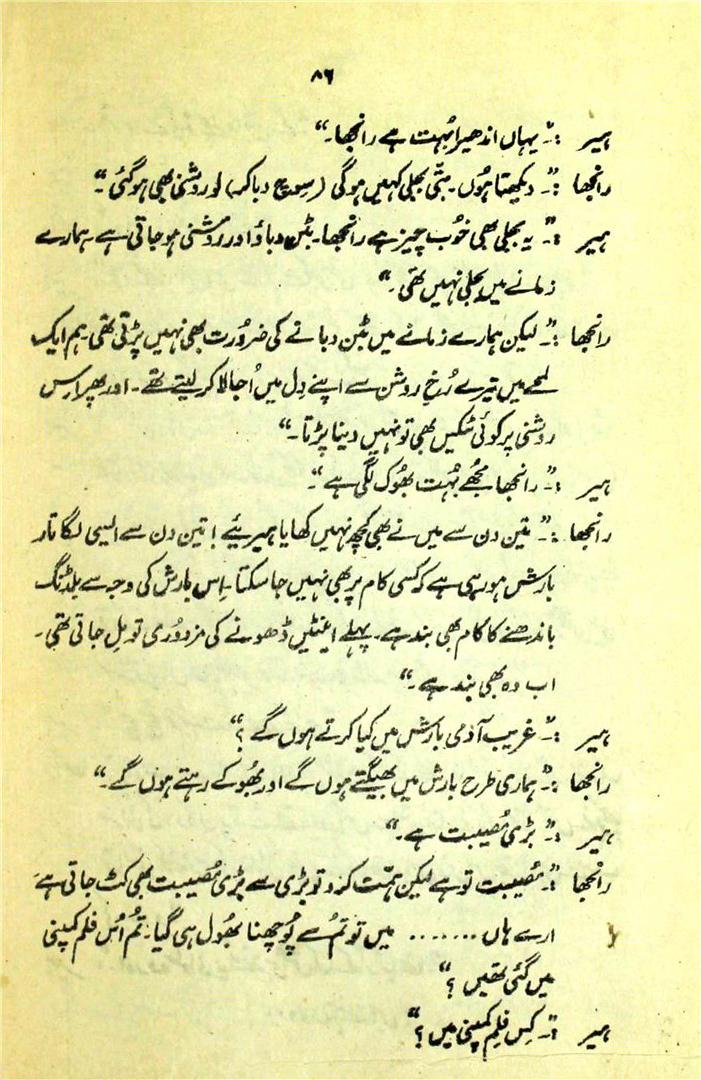 ۸۶
ہیر :۔ ”یہاں اندھیرا بُہت ہے رانجھا۔“
رانجھا :۔ ”دیکھتا ہُوں۔ بتّی بجلی کہیں ہوگی (سوِچ دباکر) لو روشنی بھی ہوگئی“۔
ہیر :۔ ”یہ بجلی بھی خُوب چیز ہے رانجھا۔ بٹن دباؤ اور روشنی ہوجاتی ہے۔ ہمارے
زمانے میں بجلی نہیں تھی۔“
رانجھا :۔ ”لیکن ہمارے زمانے میں بٹن دبانے کی ضرُورت بھی نہیں پڑتی تھی۔ ہم ایک
لمحے میں تیرے رُخِ روشن سے اپنے دِل میں اُجالا کر لیتے تھے۔ اور پھر اِس
روشنی پر کوئی ٹیکس بھی تو نہیں دینا پڑتا۔“
ہیر :۔ ”رانجھا۔ مُجھے بُہت بھُوک لگی ہے“۔
رانجھا :۔ ”تین دن سے میں نے بھی کچھ نہیں کھایا ہیریئے! تین دن سے ایسی لگاتار
بارش ہو رہی ہے کہ کسی کام پر بھی نہیں جا سکتا۔ اِس بارش کی وجہ سے بلڈنگ
باندھنے کا کام بھی بند ہے۔ پہلے اینٹیں ڈھونے کی مزدُوری تو مِل جاتی تھی۔
اب وہ بھی بند ہے۔“
ہیر :۔ ”غریب آدمی بارش میں کیا کرتے ہوں گے؟“
رانجھا :۔ ”ہماری طرح بارش میں بھیگتے ہوں گے اور بھُوکے رہتے ہوں گے۔“
ہیر :۔ ”بڑی مُصیبت ہے۔“
رانجھا :۔ ”مُصیبت تو ہے لیکن ہمّت کرو تو بڑی سے بڑی مُصیبت بھی کٹ جاتی ہے۔
ارے ہاں ....... میں تو تُم سے پُوچھنا بھُول ہی گیا۔ تُم اُس فلم کمپنی
میں گئی تھیں؟“
ہیر :۔ ”کِس فلِم کمپنی میں؟“